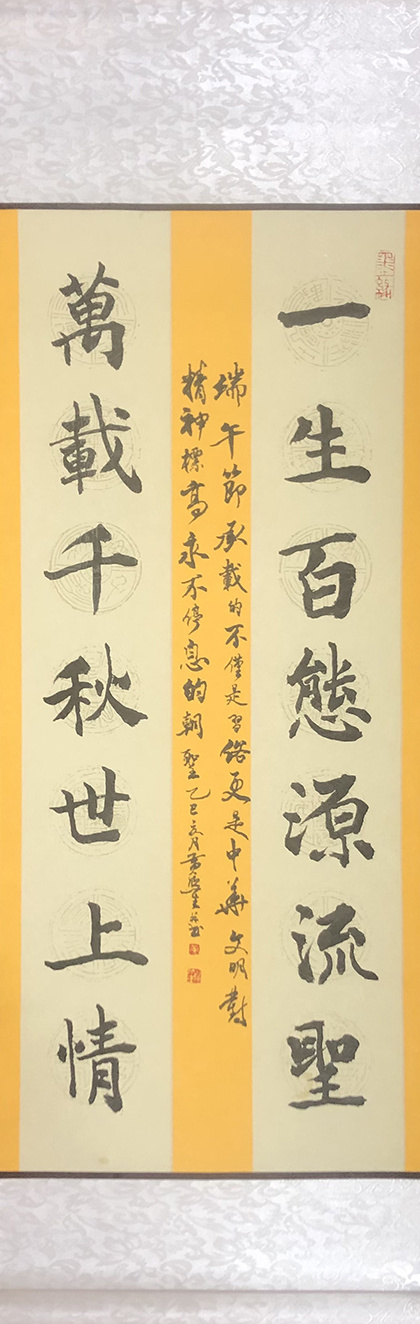 一生百態源流聖
端午節承載的不僅是習俗更是中華文明對
精神標高永不停息的朝聖乙巳
萬載千秋世上情